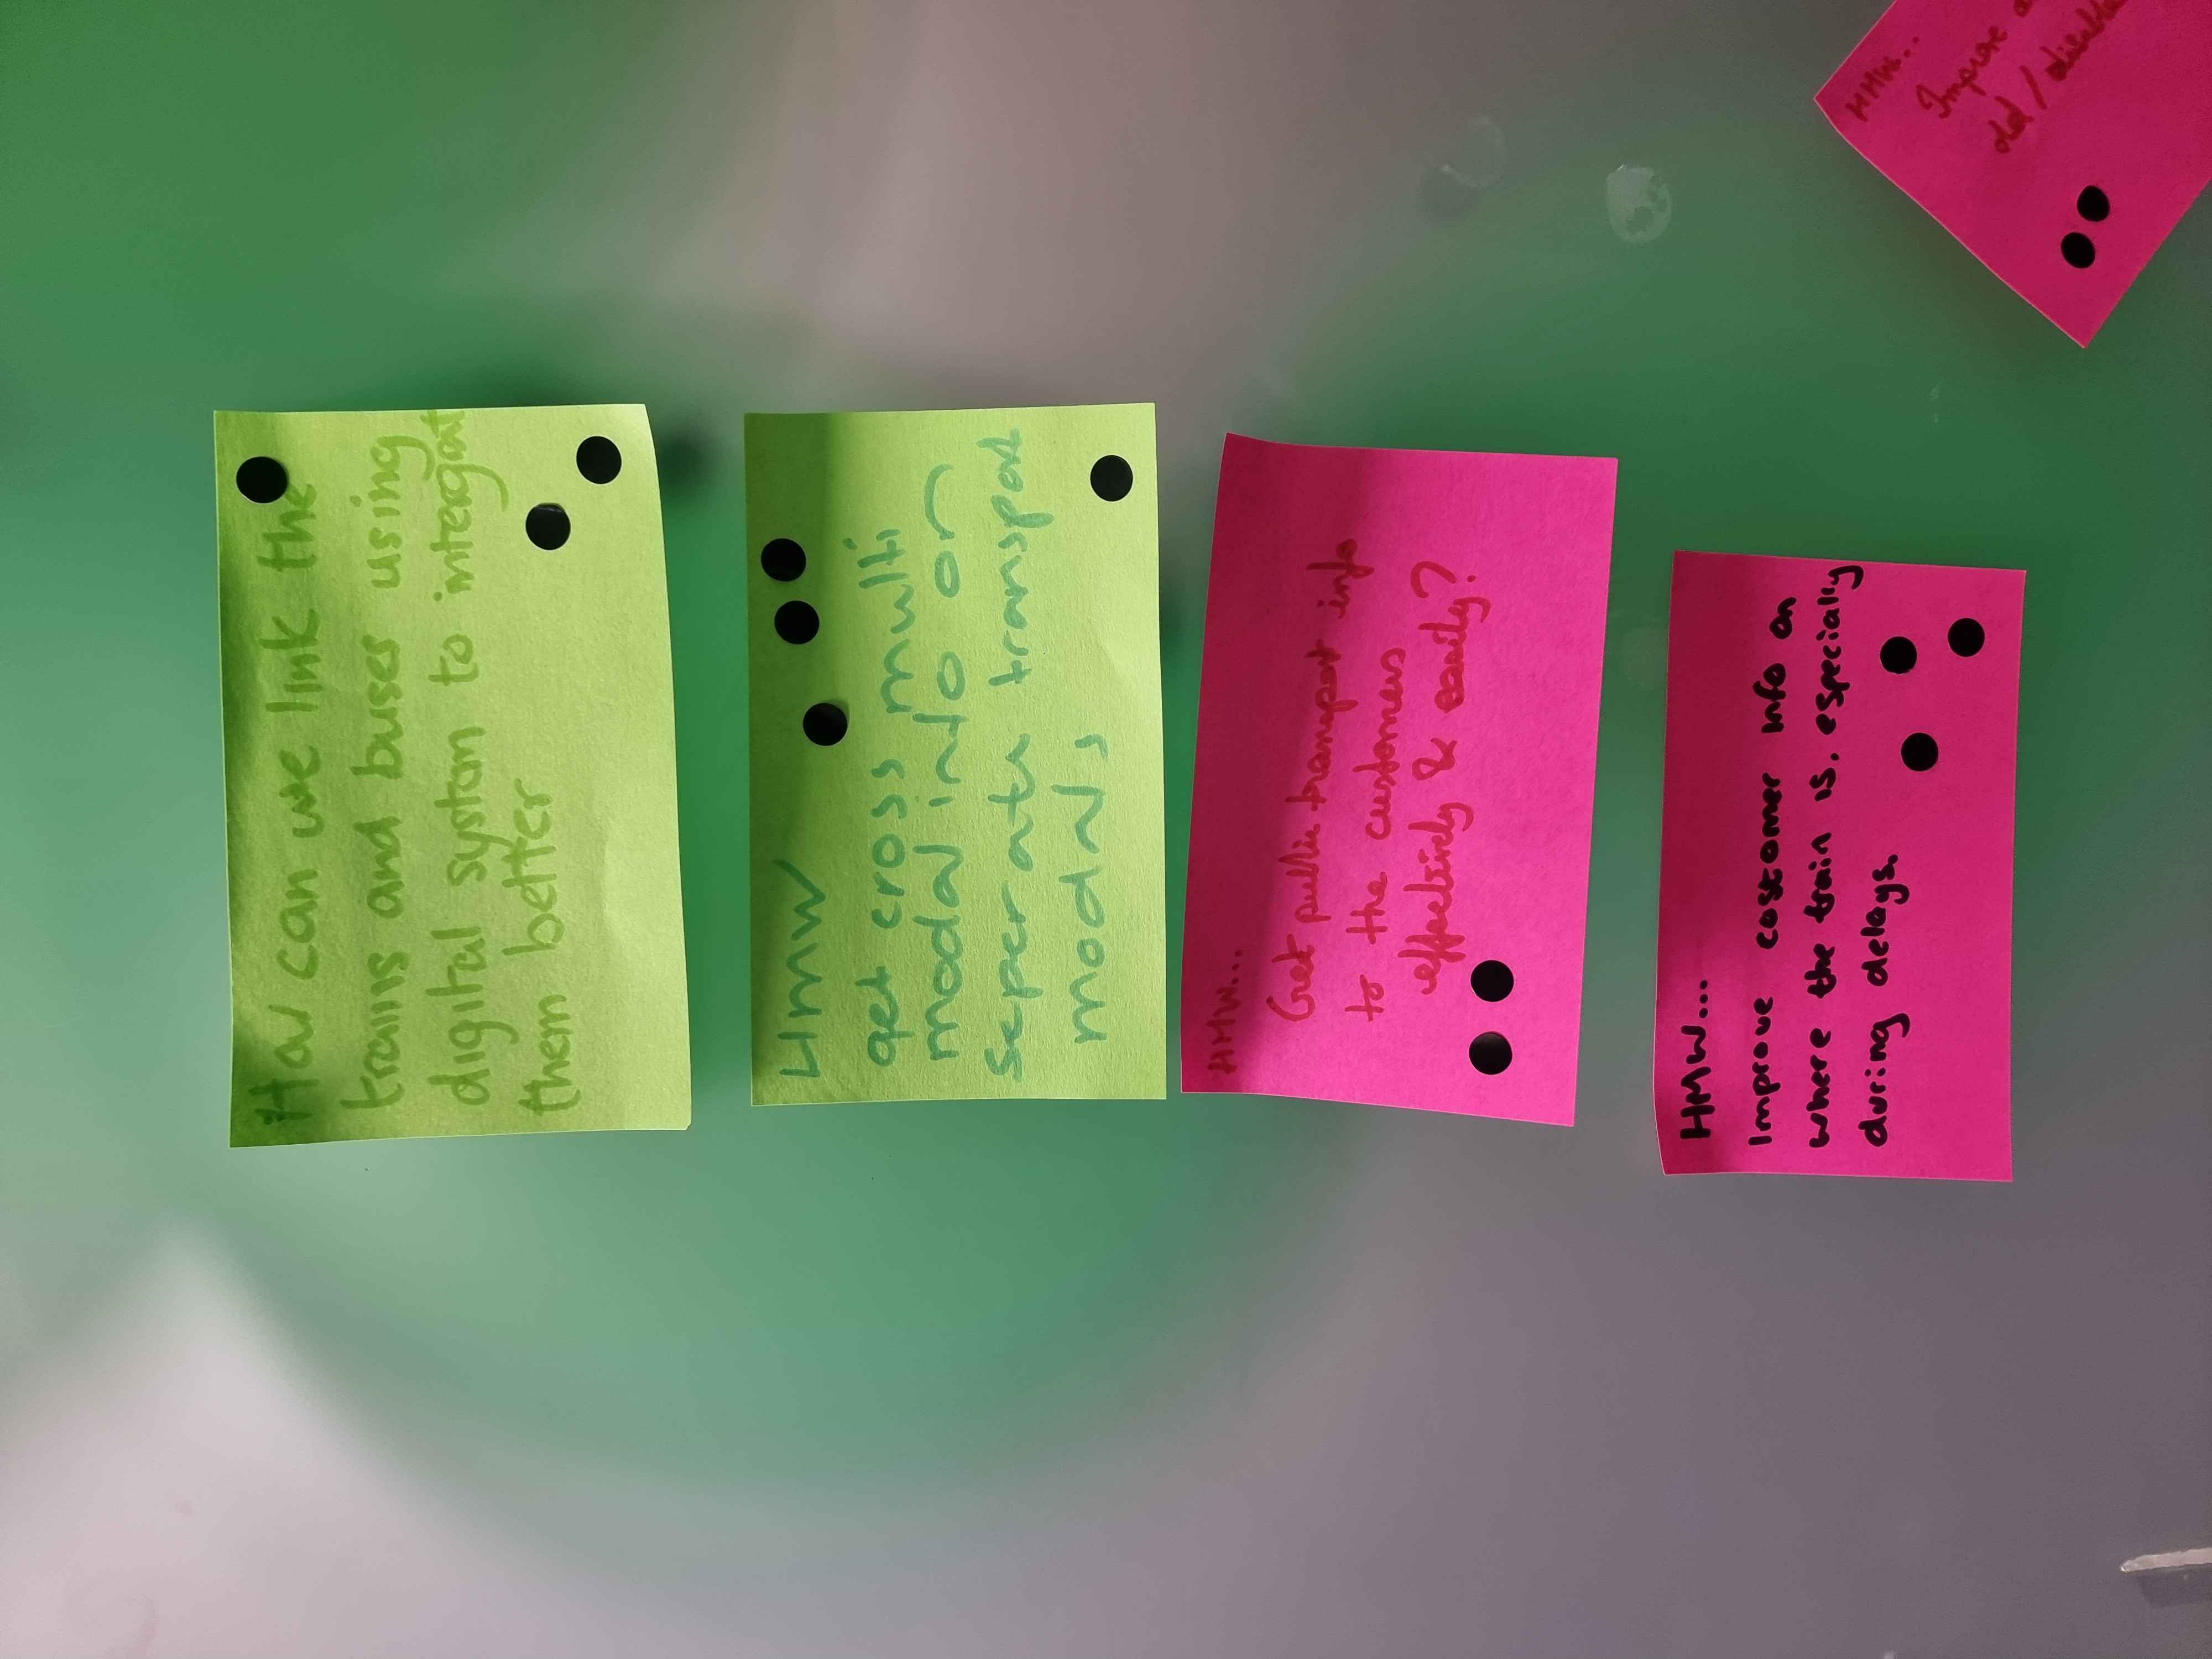 How can we link the
trains and buses using
digital system to intergat
them better
HMW
get cross multi
modal info on
seperate transport
modals
HMW...
Get public transport info
to the customers
effectively & easily?
HMW...
Improve costomer info on
where the train is. especially
during delays.
HMW...
Improve
old/